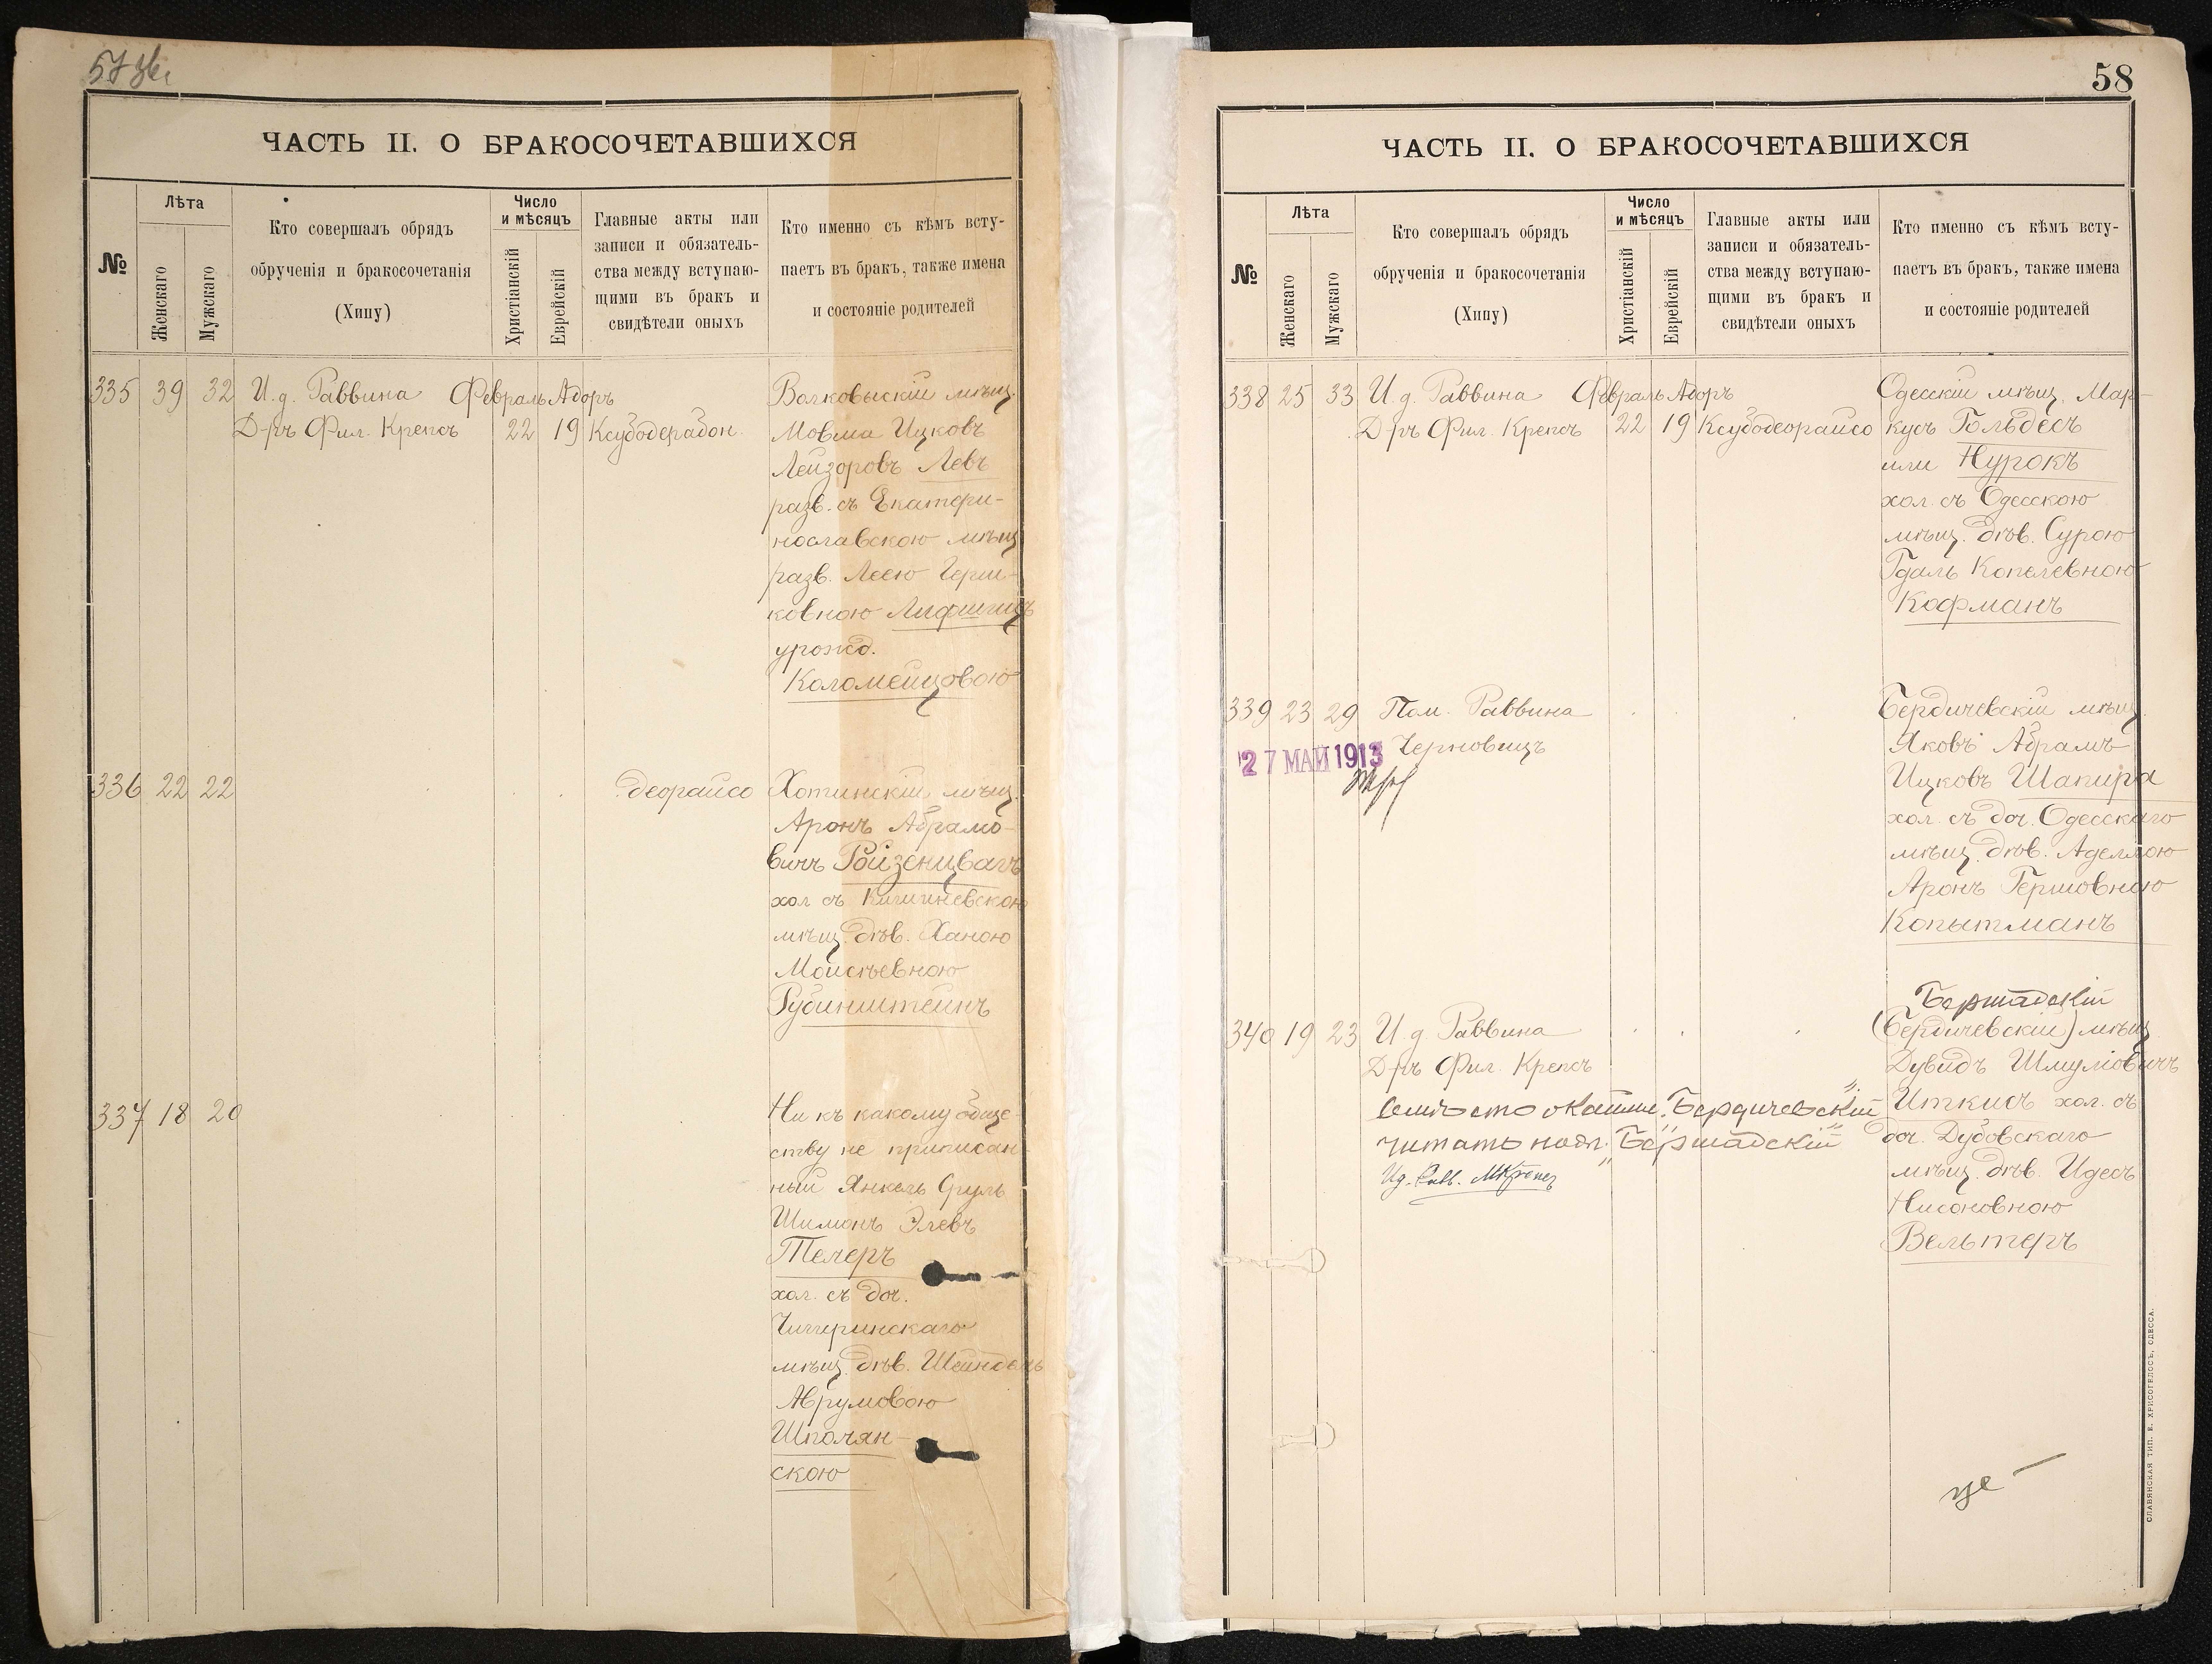 57 зв.
ЧАСТЬ II. О БРАКОСОЧЕТАВШИХСЯ
№
Лѣта
Женскаго
Мужскаго
Кто совершалъ обрядъ
обрученія и бракосочетанія
(Хипу)
Число
и мѣсяцъ
Христіанскій
Еврейскій
Главные акты или
записи и обязатель-
ства между вступаю-
щими въ бракъ и
свидѣтели оныхъ
Кто именно съ кѣмъ всту-
паетъ въ бракъ, также имена
и состояніе родителей
335 39 32 И. д. Раввина Февраль Адоръ Волковыскій мѣщ.
Д-ръ Фил. Крепсъ 22 19 Ксубодерабон Мовша Ицковъ
Лейзоровъ Левъ
разв. съ Екатери-
нославскою мѣщ
разв. Леею Герш-
ковною Лифшицъ
урожд.
Коломейцовою
336 22 22 деорайсо Хотинскій мѣщ.
Аронъ Абрамо-
вичъ Ройзенцвагъ
хол съ Кишиневскою
мѣщ. дѣв. Ханою
Моисѣевною
Рубинштейнъ
337 18 20 Ни къ какому обще-
ству не приписан-
ный Янкель Сруль
Шимонъ Элевъ
Телеръ
хол. съ доч.
Чигиринскаго
мѣщ. дѣв. Шейндель
Аврумовою
Шполян-
скою
58
ЧАСТЬ II. О БРАКОСОЧЕТАВШИХСЯ
№
Лѣта
Женскаго
Мужскаго
Кто совершалъ обрядъ
обрученія и бракосочетанія
(Хипу)
Число
и мѣсяцъ
Христіанскій
Еврейскій
Главные акты или
записи и обязатель-
ства между вступаю-
щими въ бракъ и
свидѣтели оныхъ
Кто именно съ кѣмъ всту-
паетъ въ бракъ, также имена
и состояніе родителей
338 25 33 И. д. Раввина Февраль Адоръ Одесскій мѣщ. Мар-
Д-ръ Фил. Крепсъ 22 19 Ксубодеорайсо кусъ Гольдесъ
или Нурокъ
хол. съ Одесскою
мѣщ. дѣв. Сурою
Гдаль Копелевною
Кофманъ
339 23 29 Пом. Раввина Бердичевскій мѣщ.
27 МАЙ 1913 Черновицъ Яковъ Абрамъ
Ицковъ Шапира
хол. съ доч. Одесскаго
мѣщ. дѣв. Аделлою
Аронъ Гершовною
Копытманъ
Бершадскій
340 19 23 И. д. Раввина (Бердичевскій) мѣщ
Д-ръ Фил. Крепсъ Дувидъ Шмуліовичъ
"Бердичевскій" Иткисъ хол. съ
читать "Бершадскій" доч. Дубовскаго
мѣщ. дѣв. Идесъ
Нисоновною
Вельтеръ
СЛАВЯНСКАЯ ТИП. Е. ХРИСОГЕЛОСЪ, ОДЕССА.